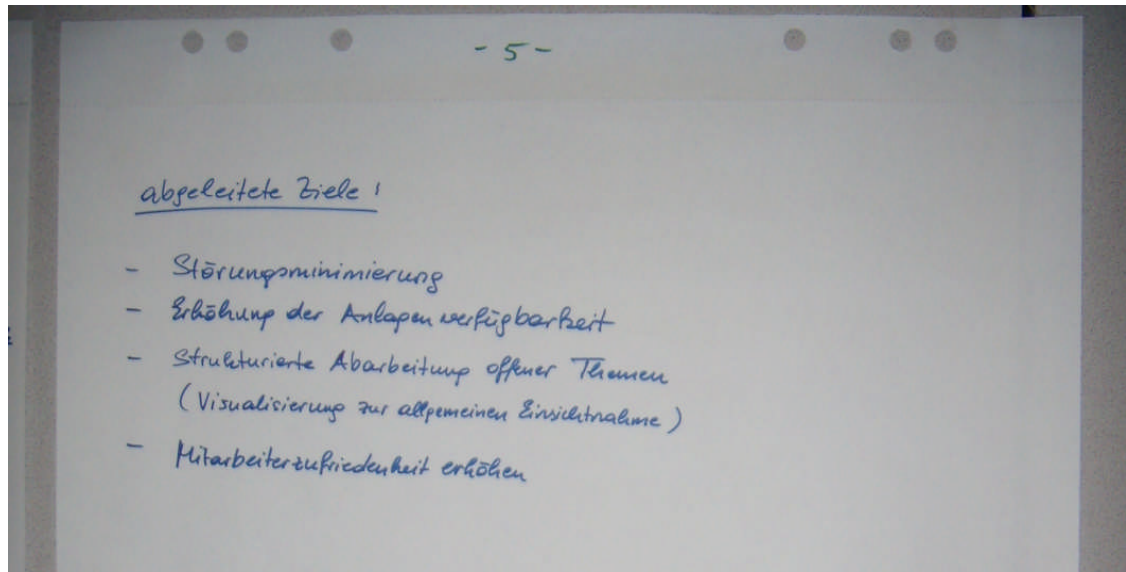 - 5 -
abgeleitete Ziele !
- Störungsminimierung
- Erhöhung der Anlagenverfügbarkeit
- Strukturierte Abarbeitung offener Themen
(Visualisierung zur allgemeinen Einsichtnahme)
- Mitarbeiterzufriedenheit erhöhen